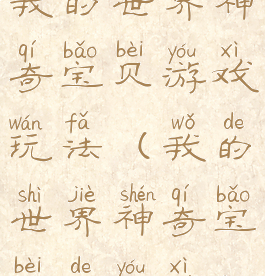 我的世界神
qí bǎo bèi yóu xì
奇宝贝游戏
wán fǎ wǒ de
玩法（我的
shì jiè shén qí bǎo
世界神奇宝
bèi de yóu xì